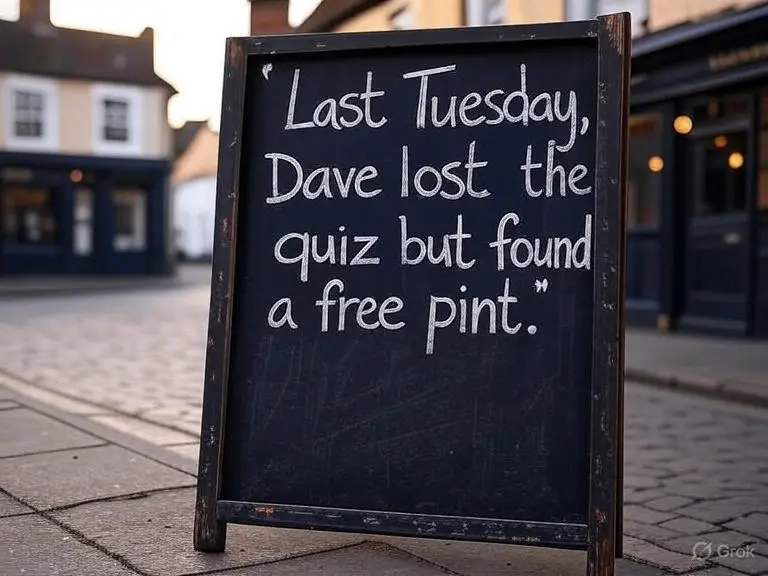 "Last Tuesday,
Dave lost the
quiz but found
a free pint."
Grok